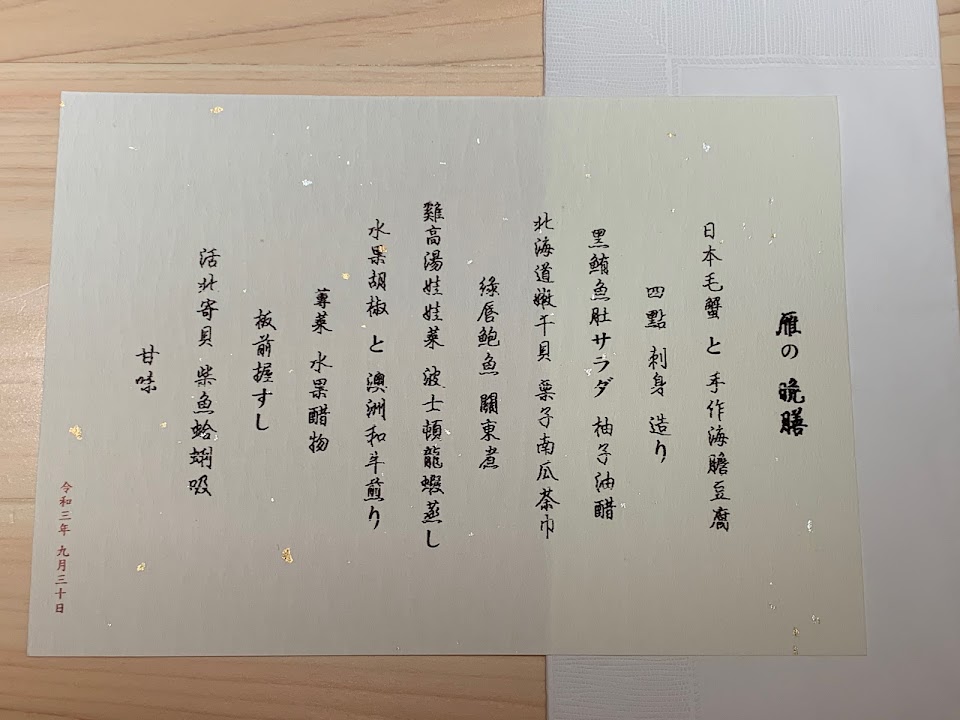 雁の 晩膳
日本毛蟹 と 手作海膽豆腐
四點 刺身 造り
黑鮪魚肚サラダ 柚子油醋
北海道嫩干貝 栗子南瓜茶巾
綠唇鮑魚 關東煮
雞高湯娃娃菜 波士頓龍蝦蒸し
水果胡椒 と 澳洲和牛煎り
蓴菜 水果醋物
板前握すし
活北寄貝 柴魚蛤蜊吸
甘味
令和三年 九月三十日